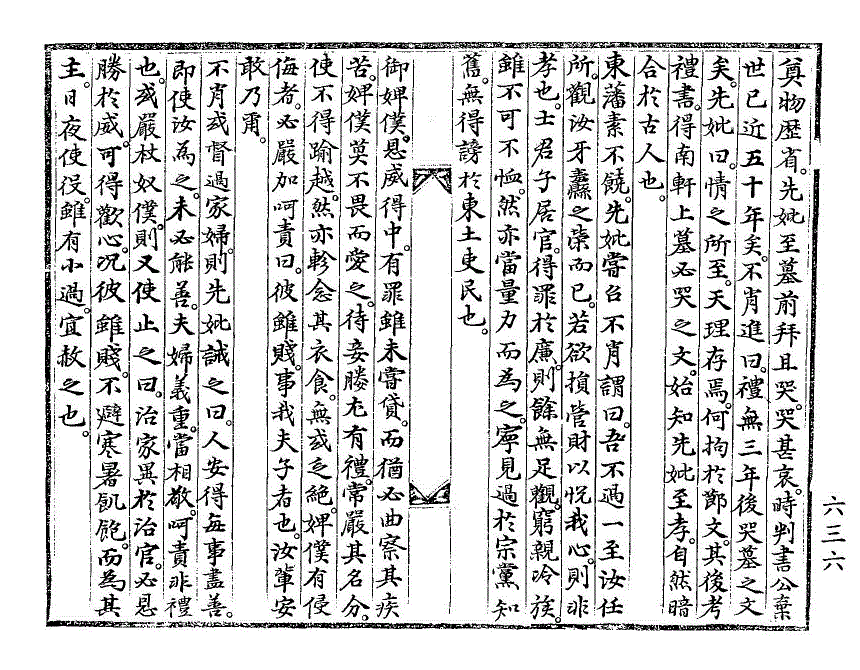 奠物歷省。先妣至墓前拜且哭。哭甚哀。時判書公棄
世已近五十年矣。不肖進曰。禮無三年後哭墓之文
矣。先妣曰。情之所至。天理存焉。何拘於節文。其後考
禮書。得南軒上墓必哭之文。始知先妣至孝。自然暗
合於古人也。
東藩素不饒。先妣嘗召不肖謂曰。吾不過一至汝任
所。觀汝牙纛之榮而已。若欲損營財以悅我心。則非
孝也。士君子居官。得罪於廉。則餘無足觀。窮親冷族。
雖不可不恤。然亦當量力而爲之。寧見過於宗黨知
舊。無得謗於東土吏民也。
御婢僕。恩威得中。有罪雖未嘗貸。而猶必曲察其疾
苦。婢僕莫不畏而愛之。待妾媵尤有禮。常嚴其名分。
使不得踰越。然亦軫念其衣食。無或乏絶。婢僕有侵
侮者。必嚴加呵責曰。彼雖賤。事我夫子者也。汝輩安
敢乃爾。
不肖或督過家婦。則先妣誡之曰。人安得每事盡善。
即使汝爲之。未必能善。夫婦義重。當相敬。呵責非禮
也。或嚴杖奴僕。則又使止之曰。治家異於治官。必恩
勝於威。可得歡心。况彼雖賤。不避寒暑飢飽。而爲其
主。日夜使役。雖有小過。宜赦之也。
六三六